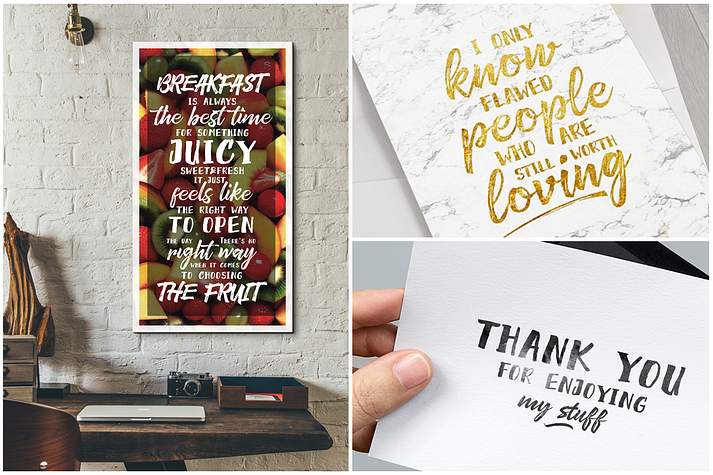 BREAKFAST
IS ALWAYS
the best time
FOR SOMETHING
JUICY
SWEET&FRESH
IT JUST
feels like
THE RIGHT WAY
TO OPEN
THE DAY THERE'S NO
right way
WHEN IT COMES
TO CHOOSING
THE FRUIT
I ONLY
know
FLAWED
people
WHO ARE
STILL WORTH
loving
THANK YOU
FOR ENJOYING
my stuff